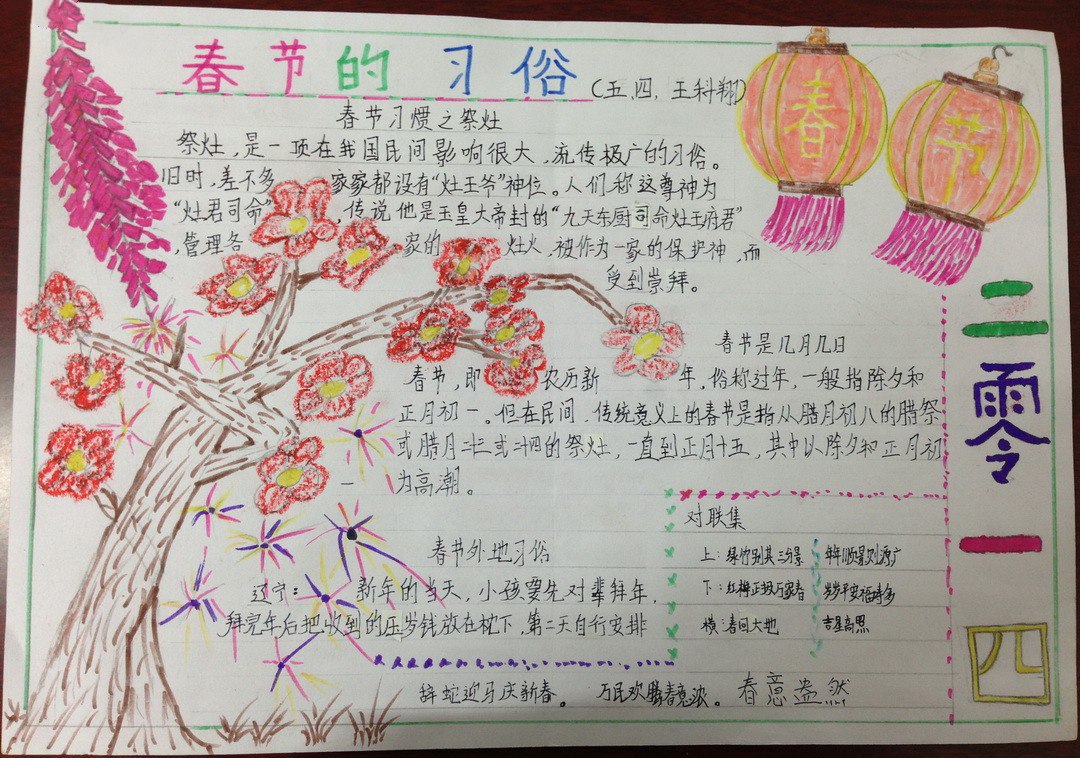 春节的习俗
(五.四.王科翔)
春节习惯之祭灶
祭灶，是一项在我国民间影响很大、流传极广的习俗。
旧时，差不多家家都设有“灶王爷”神位。人们称这尊神为
“灶君司命”，传说他是玉皇大帝封的“九天东厨司命灶王府君”
，管理各家的灶火，被作为一家的保护神，而
受到崇拜。
春
节
春节是几月几日
春节，即农历新年，俗称过年，一般指除夕和
正月初一。但在民间，传统意义上的春节是指从腊月初八的腊祭
或腊月廿三或廿四的祭灶，一直到正月十五，其中以除夕和正月初
一为高潮。
二
零
一
四
春节外地习俗
辽宁：新年的当天，小孩要先对辈拜年，
拜完年后把收到的压岁钱放在枕下，第二天自行安排
对联集
上：绿竹别其三分景
下：红梅正报万家春
横：春回大地
年年顺景则源广
岁岁平安福寿多
吉星高照
辞蛇迎马庆新春。万民欢腾春意浓。春意盎然